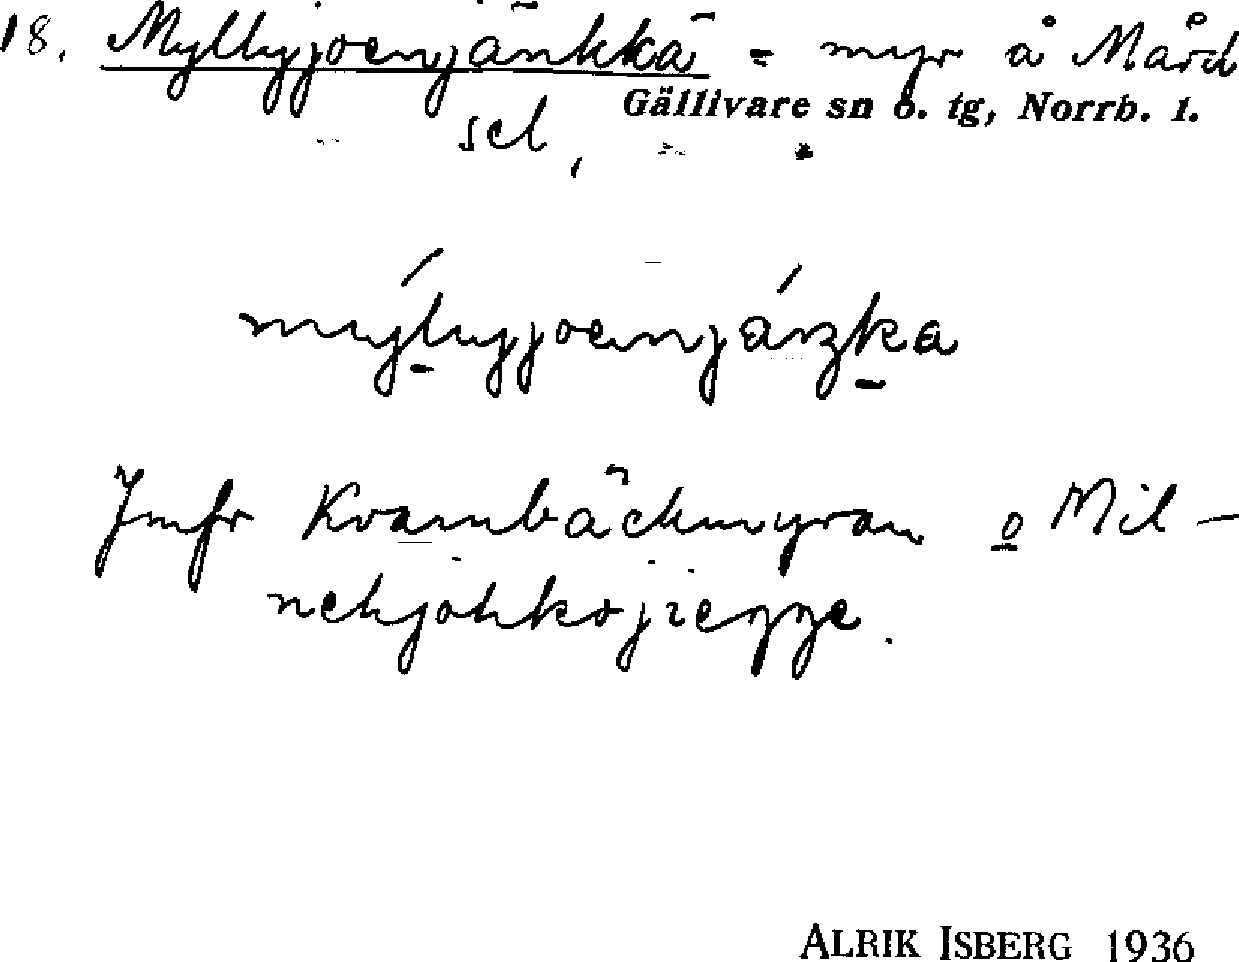 18. Myllyjoenjänkkä = myr å Mård
Gällivare sn o. tg, Norrb. l.
sel,
Jmfr Kvarnbäckmyran o Mil-
nehjohkojiegge.
ALRIK ISBERG 1936